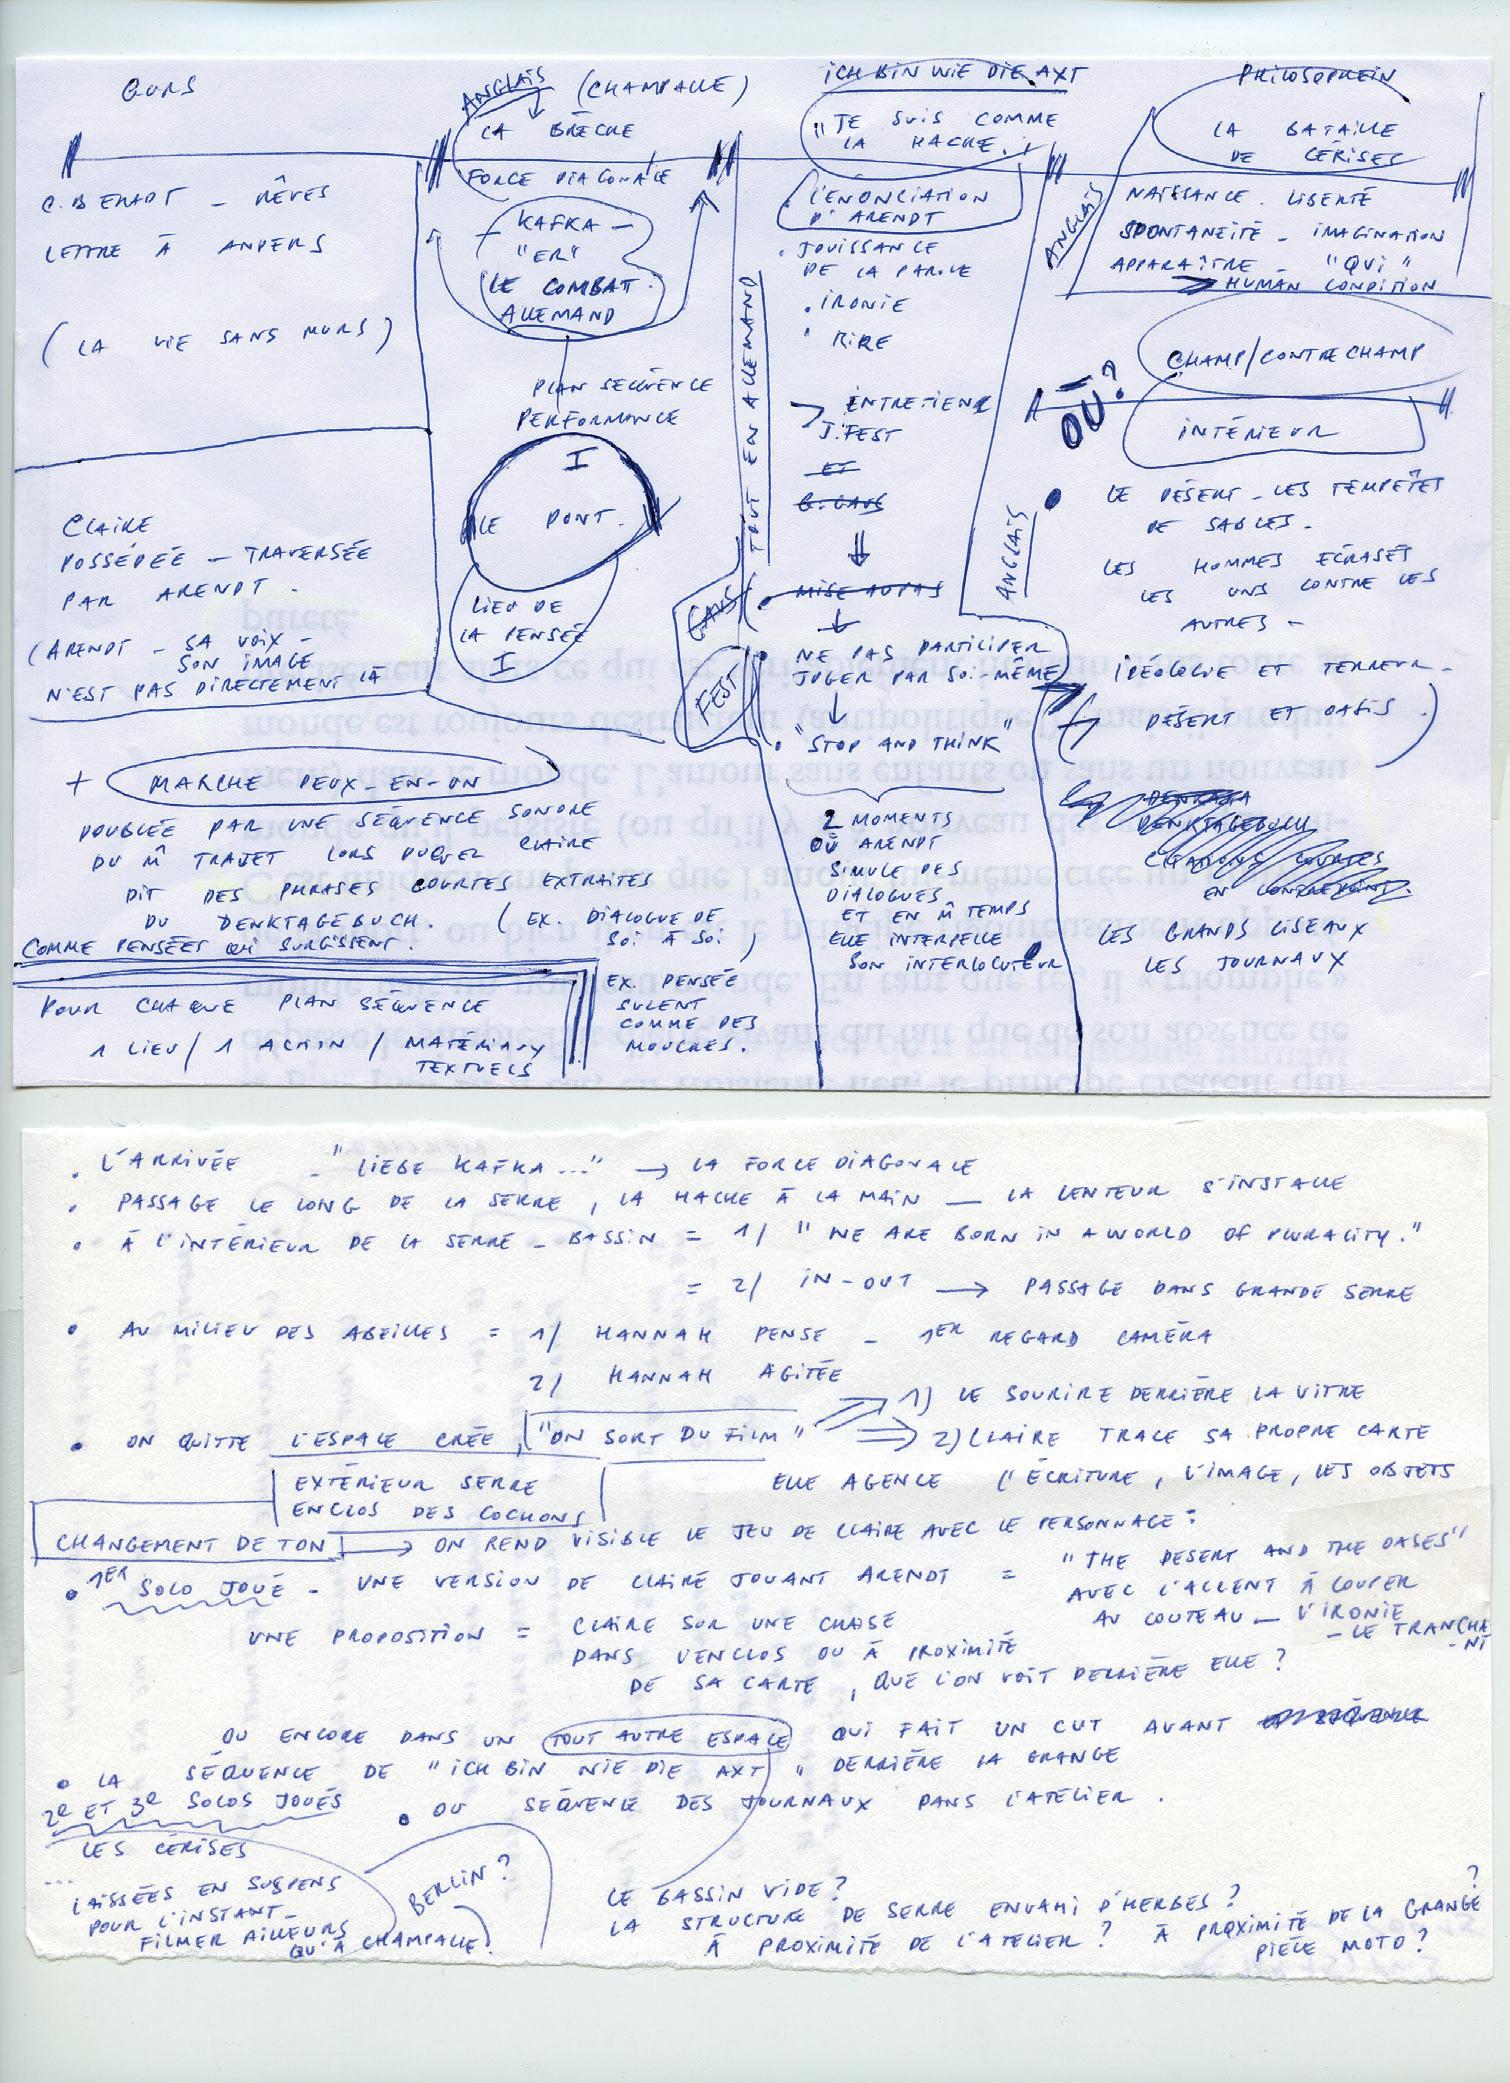 GURS
C. BERADT - RÊVES
LETTRE À ANDERS
(LA VIE SANS MURS)
CLAIRE
POSSÉDÉE - TRAVERSÉE
PAR ARENDT.
(ARENDT - SA VOIX -
SON IMAGE
N'EST PAS DIRECTEMENT LÀ
ANGLAIS (CHAMPALLE)
LA BRÈCHE
FORCE DIAGONALE
KAFKA -
"ER"
LE COMBAT.
ALLEMAND
PLAN SÉQUENCE
PERFORMANCE
I
LE PONT.
LIEU DE
LA PENSÉE
I
+ MARCHE DEUX-EN-UN
DOUBLÉE PAR UNE SÉQUENCE SONORE
DU M̂ TRAJET LORS DUQUEL CLAIRE
DIT DES PHRASES COURTES EXTRAITES
DU DENKTAGEBUCH. (EX. DIALOGUE DE
SOI À SOI)
COMME PENSÉES QUI SURGISSENT.
EX. PENSÉE
COMME DES
MOUCHES.
POUR CHAQUE PLAN SÉQUENCE
1 LIEU / 1 ACTION / MATÉRIAUX
TEXTUELS
TOUT EN ALLEMAND
ICH BIN WIE DIE AXT
"JE SUIS COMME
LA HACHE."
. L'ÉNONCIATION
D'ARENDT
. JOUISSANCE
DE LA PAROLE
. IRONIE
. RIRE
> ENTRETIENS
J. FEST
ET
G. GAUS
⇓
• MISE AU PAS
↓
GAUS
FEST
• NE PAS PARTICIPER
JUGER PAR SOI-MÊME
↓
• "STOP AND THINK"
2 MOMENTS
OÙ ARENDT
SIMULE DES
DIALOGUES
ET EN M̂ TEMPS
ELLE INTERPELLE
SON INTERLOCUTEUR
PHILOSOPHEIN
LA BATAILLE
DE CERISES
ANGLAIS
NAISSANCE. LIBERTÉ
SPONTANÉITÉ - IMAGINATION
APPARAÎTRE - "QUI"
→ HUMAN CONDITION
CHAMP/CONTRECHAMP
OÙ?
INTÉRIEUR
ANGLAIS
• LE DÉSERT - LES TEMPÊTES
DE SABLES.
LES HOMMES ÉCRASÉS
LES UNS CONTRE LES
AUTRES -
IDÉOLOGIE ET TERREUR.
(DÉSERT ET OASIS.)
DENKTAGEBUCH
CITATIONS COURTES
EN CONTREPOINT.
LES GRANDS CISEAUX
LES JOURNAUX
. L'ARRIVÉE - "LIEBE KAFKA..." → LA FORCE DIAGONALE
. PASSAGE LE LONG DE LA SERRE, LA HACHE À LA MAIN — LA LENTEUR S'INSTALLE
• À L'INTÉRIEUR DE LA SERRE - BASSIN = 1/ "WE ARE BORN IN A WORLD OF PLURALITY."
= 2/ IN-OUT → PASSAGE DANS GRANDE SERRE
• AU MILIEU DES ABEILLES = 1/ HANNAH PENSE - 1ER REGARD CAMÉRA
2/ HANNAH AGITÉE
1) LE SOURIRE DERRIÈRE LA VITRE
• ON QUITTE L'ESPACE CRÉE, "ON SORT DU FILM" ⇒ 2) CLAIRE TRACE SA PROPRE CARTE
EXTÉRIEUR SERRE
ENCLOS DES COCHONS
ELLE AGENCE L'ÉCRITURE, L'IMAGE, LES OBJETS
CHANGEMENT DE TON → ON REND VISIBLE LE JEU DE CLAIRE AVEC LE PERSONNAGE:
• 1ER SOLO JOUÉ - UNE VERSION DE CLAIRE JOUANT ARENDT = "THE DESERT AND THE OASES"
AVEC L'ACCENT À COUPER
AU COUTEAU — L'IRONIE
- LE TRANCHA
-NT
UNE PROPOSITION = CLAIRE SUR UNE CHAISE
DANS L'ENCLOS OU À PROXIMITÉ
DE SA CARTE, QUE L'ON VOIT DERRIÈRE ELLE?
OU ENCORE DANS UN TOUT AUTRE ESPACE QUI FAIT UN CUT AVANT LA SÉQUENCE
• LA SÉQUENCE DE "ICH BIN WIE DIE AXT" DERRIÈRE LA GRANGE
• OU SÉQUENCE DES JOURNAUX DANS L'ATELIER.
2e ET 3e SOLOS JOUÉS
LES CERISES
... LAISSÉES EN SUSPENS
POUR L'INSTANT -
FILMER AILLEURS
QU'À CHAMPALLE?
BERLIN?
LE BASSIN VIDE?
LA STRUCTURE DE SERRE ENVAHI D'HERBES?
À PROXIMITÉ DE L'ATELIER? À PROXIMITÉ DE LA GRANGE?
PIÈCE MOTO?